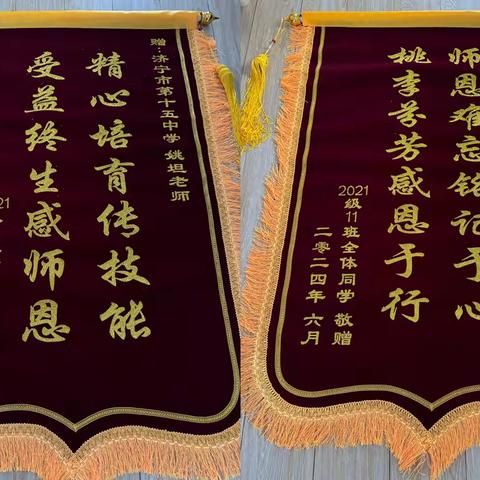 赠:济宁市第十五中学 姚坦老师
精心培育传技能
受益终生感师恩
21
师恩难忘铭记于心
桃李芬芳感恩于行
2021级11班全体同学 敬赠
二零二四年 六月